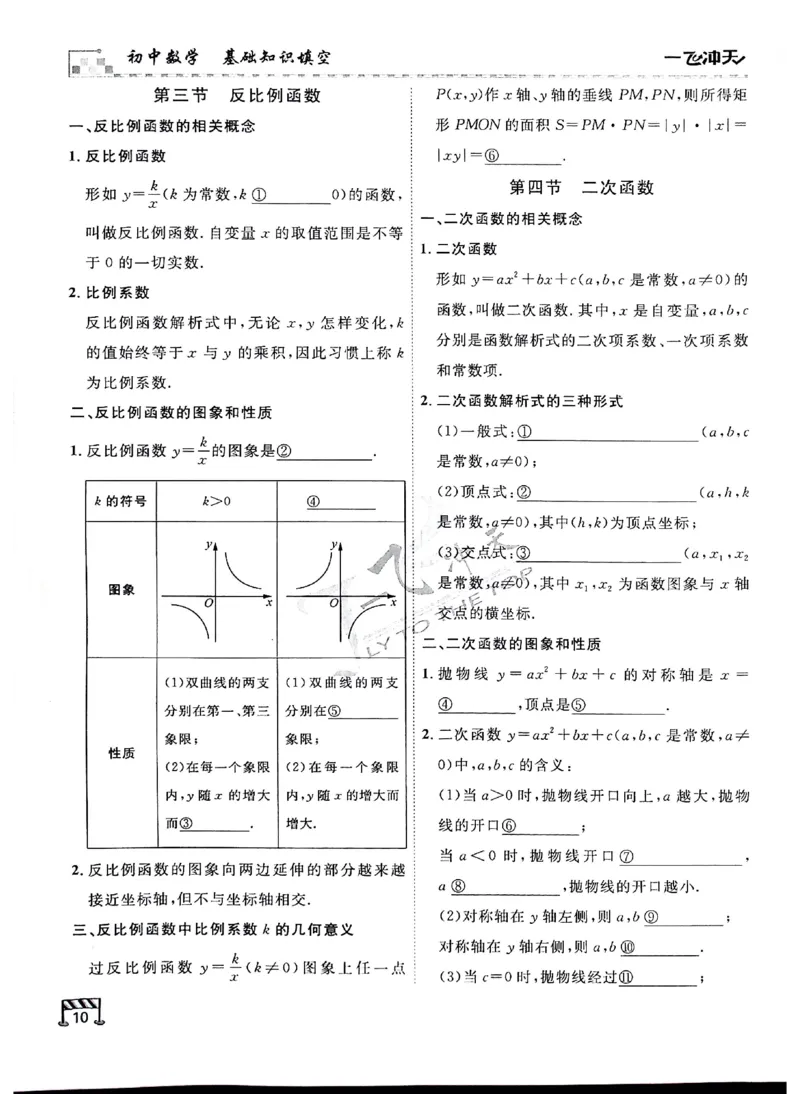 初中数学 基础知识填空
一飞冲天
第三节 反比例函数
一、反比例函数的相关概念
1. 反比例函数
形如 y=k/x(k 为常数,k ①________0)的函数,
叫做反比例函数. 自变量 x 的取值范围是不等
于 0 的一切实数.
2. 比例系数
反比例函数解析式中,无论 x,y 怎样变化,k
的值始终等于 x 与 y 的乘积,因此习惯上称 k
为比例系数.
二、反比例函数的图象和性质
1. 反比例函数 y=k/x的图象是②________.
k 的符号
k>0
④________
图象
y
O
x
y
O
x
性质
(1)双曲线的两支
分别在第一、第三
象限;
(2)在每一个象限
内,y 随 x 的增大
而③________.
(1)双曲线的两支
分别在⑤________
象限;
(2)在每一个象限
内,y 随 x 的增大而
增大.
2. 反比例函数的图象向两边延伸的部分越来越
接近坐标轴,但不与坐标轴相交.
三、反比例函数中比例系数 k 的几何意义
过反比例函数 y=k/x(k≠0)图象上任一点
P(x,y)作 x 轴、y 轴的垂线 PM,PN,则所得矩
形 PMON 的面积 S=PM·PN=|y|·|x|=
|xy|=⑥________.
第四节 二次函数
一、二次函数的相关概念
1. 二次函数
形如 y=ax²+bx+c(a,b,c 是常数,a≠0)的
函数,叫做二次函数. 其中,x 是自变量,a,b,c
分别是函数解析式的二次项系数、一次项系数
和常数项.
2. 二次函数解析式的三种形式
(1)一般式:①________(a,b,c
是常数,a≠0);
(2)顶点式:②________(a,h,k
是常数,a≠0),其中(h,k)为顶点坐标;
(3)交点式:③________(a,x₁,x₂
是常数,a≠0),其中 x₁,x₂ 为函数图象与 x 轴
交点的横坐标.
二、二次函数的图象和性质
1. 抛物线 y=ax²+bx+c 的对称轴是 x=
④________,顶点是⑤________.
2. 二次函数 y=ax²+bx+c(a,b,c 是常数,a≠
0)中,a,b,c 的含义:
(1)当 a>0 时,抛物线开口向上,a 越大,抛物
线的开口⑥________;
当 a<0 时,抛物线开口⑦________,
a ⑧________,抛物线的开口越小.
(2)对称轴在 y 轴左侧,则 a,b ⑨________;
对称轴在 y 轴右侧,则 a,b ⑩________.
(3)当 c=0 时,抛物线经过⑪________;
10